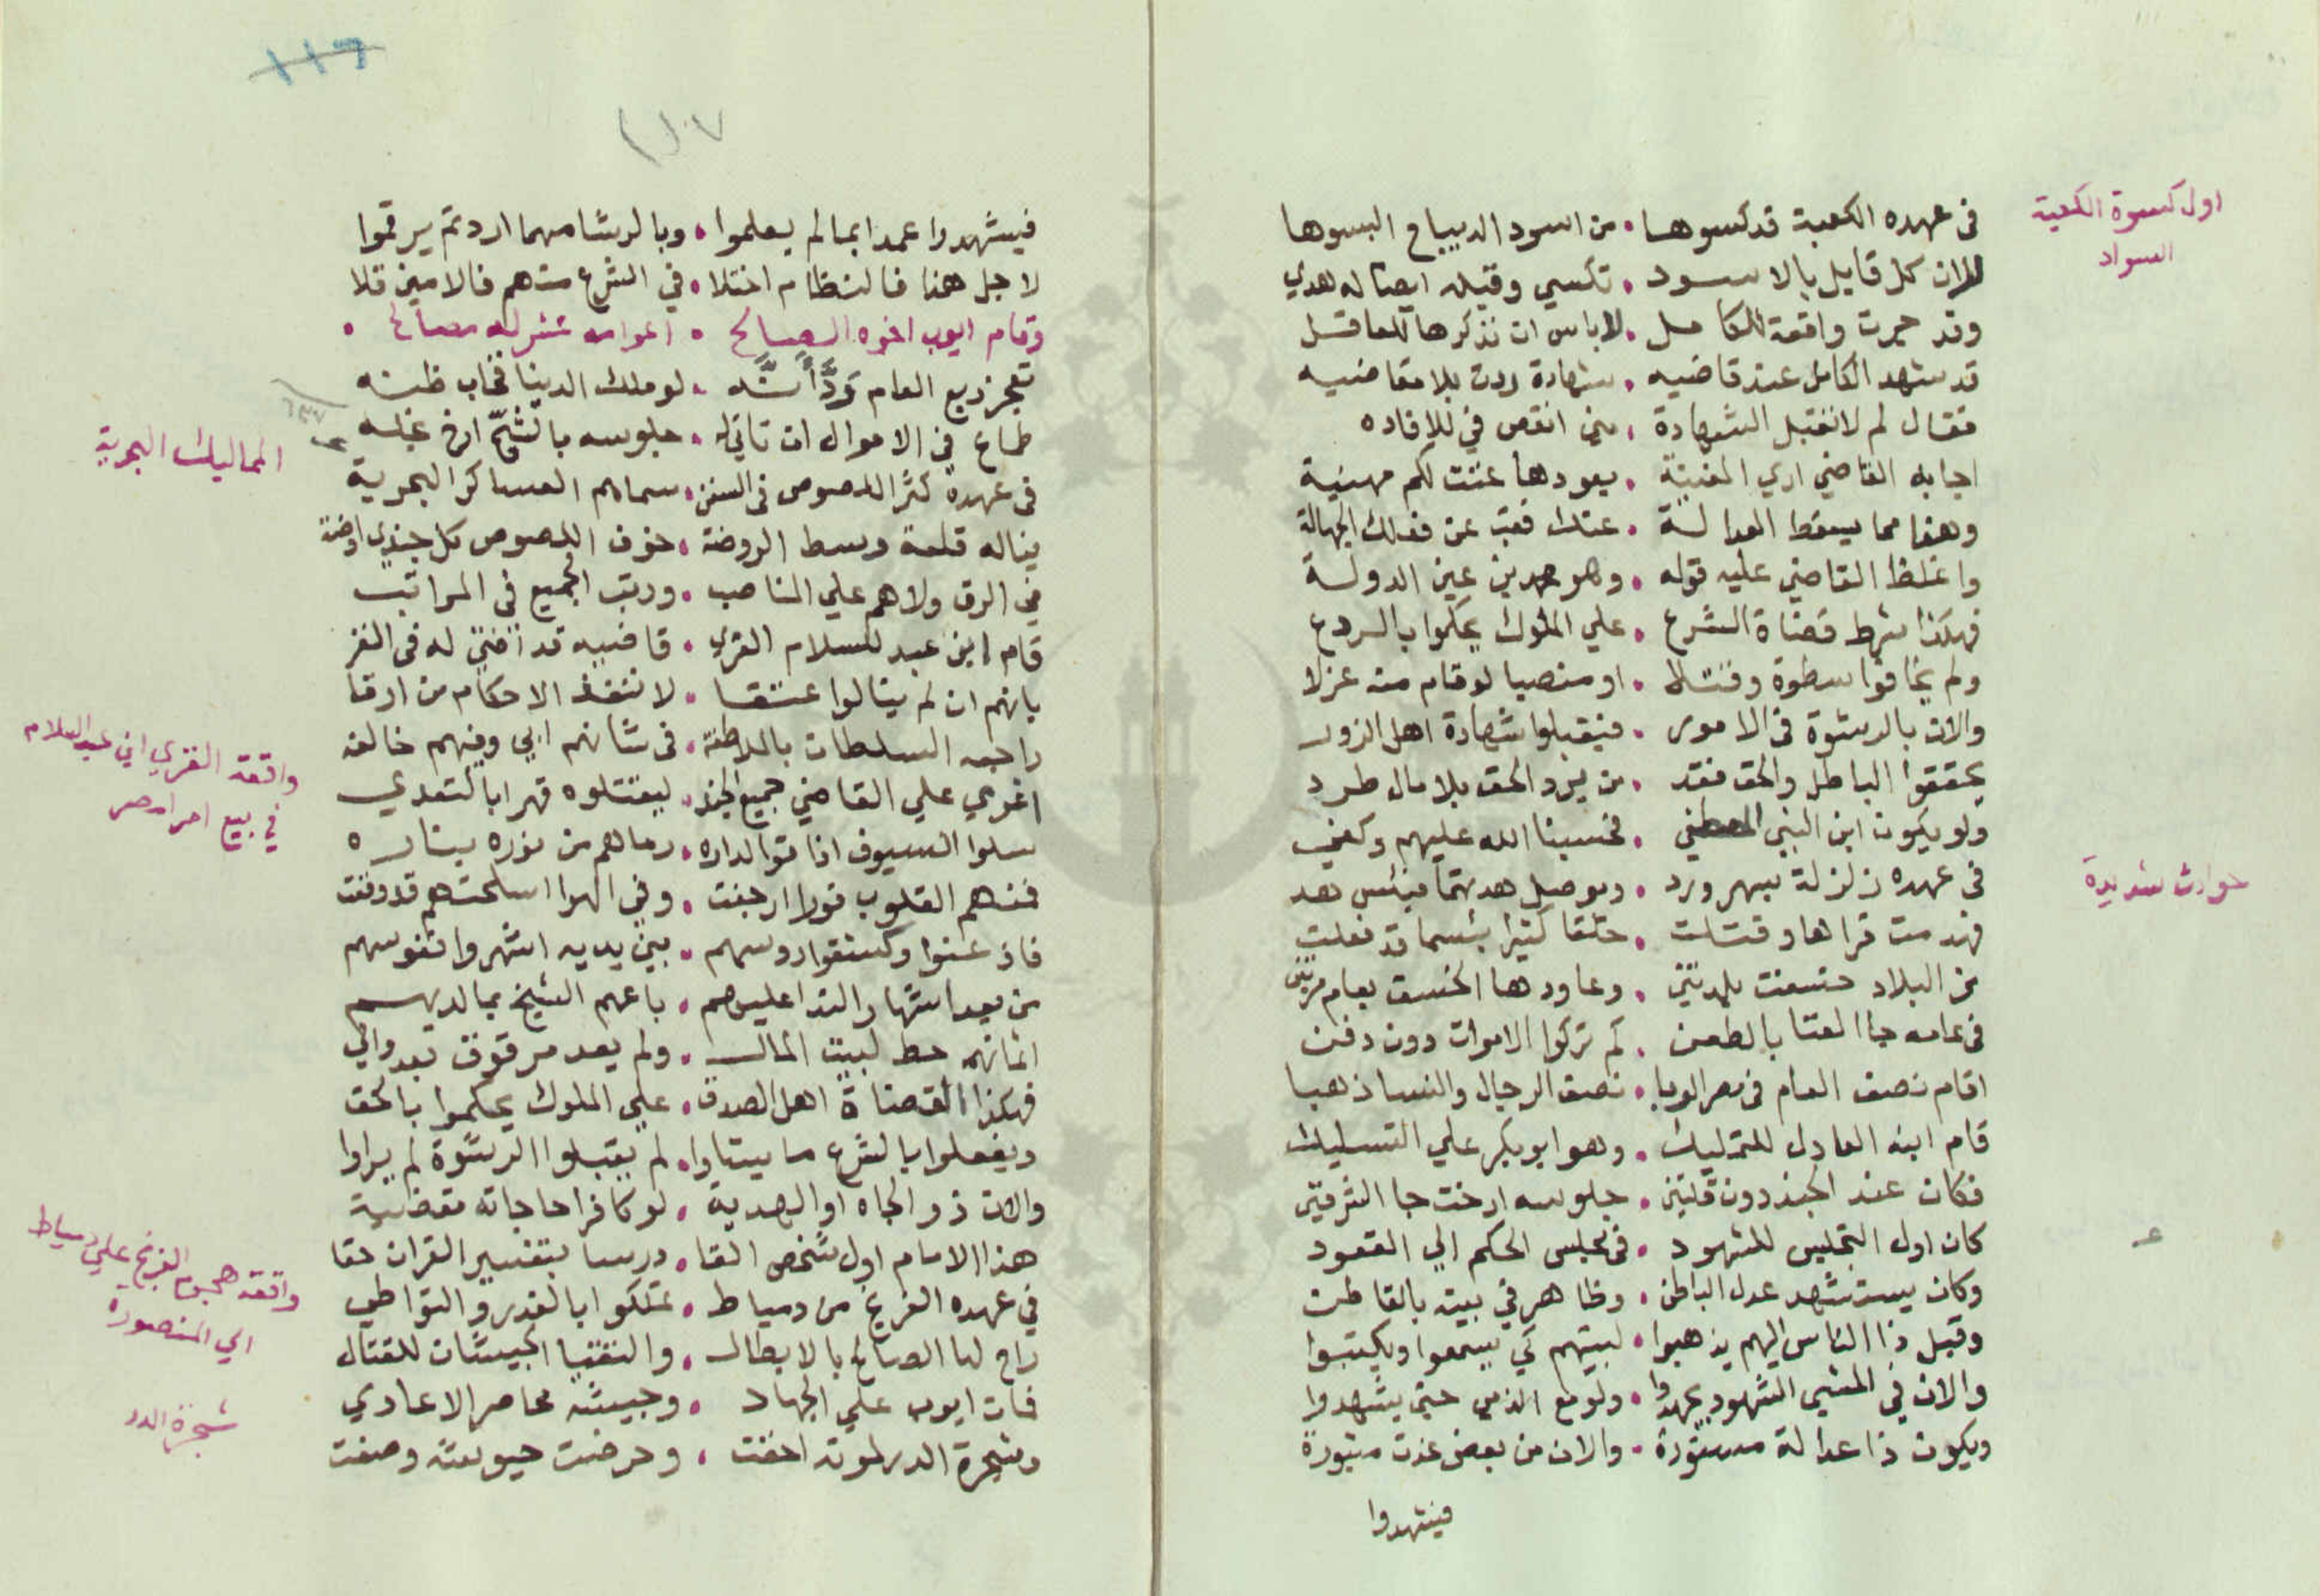 اول كسوة الكعبة
السواد
فى عهده الكعبة قد كسوها . من اسود الديباج البسوها
كل قايل بالاسود . تكسي وقيل ايضا له هدي
وقد جرت واقعة للكامل . لاباس ان نذكرها للعاقل
قد شهد الكامل عند قاضيه . شهادة ردت بلا مقاضيه
فقال لم لا تقبل الشهادة . انقص في للافاده
اجابه القاضي اري المغنية . بعودها غنت لكم مهنية
وهذا مما يسقط العدالة . عنك فتب عن فعلك الجهالة
واغلظ القاضي عليه قوله . وهو محمد بن عين الدولة
فهكذا شرط قضاة الشرع . علي الملوك يحكموا بالردع
ولم يخافوا سطوة وقتلا . او منصبا لوقام منه عزلا
والان بالرشوة في الامور . فيقبلوا شهادة اهل الزور
يحققوا الباطل والحق فقد . من يرد الحق بلا مال طرد
ولو يكون ابن النبي المصطفي . فحسبنا الله عليهم وكفي
حوادث شديدة
فى عهده زلزلة بمصر ورد . هدتها فبئس هد
فهدمت قراها وقتلت . خلقا كثيرا بئسما قد فعلت
من البلاد خسفت بلدتين . وعاودها الخسف بعام مرتين
فى عامه جا الفنا بالطعن . كم تركوا الاموات دون دفن
اقام نصف العام فى مصر الوبا . نصف الرجال والنسا ذهبا
قام ابنه العادل للتمليك . وهو ابو بكر علي التسليك
فكان عند الجند دون قلتين . جلوسه ارخت جا الشرفين
كان اول التجليس للشهود . فى مجلس الحكم الي القعود
وكان يستشهد عدل الباطن . وظاهر في بيته بالقاطن
وقبل ذا الناس اليهم يذهبوا . لبيتهم كي يسمعوا ويكتبوا
والان في المشي الشهود يجهدوا . ولو مع الذمي حتي يشهدوا
ويكون ذا عدالة مستورة . والان من بعض غدت مبتورة
فيشهدوا
١١٦
١٠٧
فيشهدوا عمدا بما لم يعلموا . وبالرشا مهما اردتم يرقموا
لاجل هذا فالنظام اختلا . في الشرع منهم فالامين قلا
وقام ايوب اخوه الصالح .
تعجز ربع العام . لو ملك الدينا فخاب ظنه
طماع في الاموال ان تاتي له . جلوسه بالشح ارخ غله
المماليك البحرية
فى عهده كثر اللصوص فى السفن . سماهم العساكر البحرية
بناله قلعة وسط الروضة . خوف اللصوص كل جندي اوضة
من الرق ولاهم علي المناصب . ورتب الجميع في المراتب
قام ابن عبد للسلام الغزي . قاضيه قد افتي له فى الغز
بانهم ان لم ينالوا عتقا . لا تنفذ الاحكام من ارقا
راجعه السلطان بالملاطفة . فى شانهم ابي وفيهم خالفه
واقعة الغزي ابن عبد السلام
في بيع امرا مصر
اغري علي القاضي جميع الجند . ليقتلوه قهرا بالتعدي
سلوا السيوف اذا توا لداره . رماهم من نوره بناره
فمنهم القلوب فورا ارجفت . وفي الهوا اسلحتهم قد وقفت
فاذعنوا وكشفوا روسهم . بين يديه اشهروا نفوسهم
من بعد اشهار الندا عليهم . باعهم الشيخ بما لديهم
اثمانهم حط لبيت المال . ولم يعد مرقوق بعد والي
فهكذا القضاة اهل الصدق . علي الملوك يحكموا بالحق
ويفعلوا بالشرع ما يشاوا . لم يقبلوا الرشوة لم يراوا
والان ذو الجاه او الهدية . لو كافرا حاجاته مقضية
هذا الامام اول شخص القا . درسا بتفسير القران حقا
واقعة هجوم الفرنج علي دمياط
الي المنصورة
في عهده الفرنج من دمياط . تملكوا بالغدر والتواطي
راح لها الصالح بالابطال . والتقيا الجيشان للقتال
شجرة الدر
فمات ايوب علي الجهاد . وجيشه محاصر الاعادي
وشجرة الدر لموته اخفت . وحرضت جيوشه وصفت